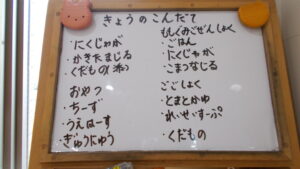 きょうのこんだて
・にくじゃが
・かきたまじる
・くだもの
おやつ
・ちーず
・うえはーす
・ぎゅうにゅう
もしくみごぜんしょく
・ごはん
・にくじゃが
・こまつなじる
ごごしょく
・とまとかゆ
・れいせいすーぷ
・くだもの